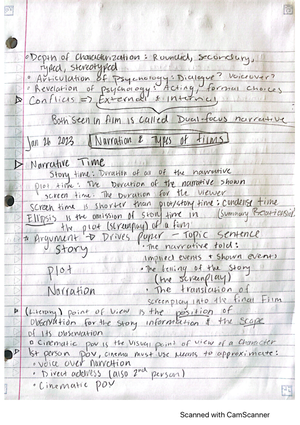 • Depth of characterization: Rounded, secondary,
typed, stereotyped
• Articulation of Psychology: Dialogue? Voiceover?
• Revelation of Psychology: Acting / formal choices
Conflicts => External & Internal
Both seen in Film is called Dual-focus narrative
Jan 26 2023 Narration & Types of Films
Narrative Time
Story time: Duration of all of the narrative
plot time: The Duration of the narrative shown
screen time: The Duration for the viewer
Screen time is shorter than plot/story time: condense time
Ellipsis is the omission of story time in (summary
the plot (screenplay) of a film
Argument → Drives Paper - Topic Sentence
Story • The narrative told:
implied events & shown events
plot • The telling of the story
(the screenplay)
Narration • The translation of
screenplay into the final Film
(Literary) Point of view is the position of
observation for the story information & the scope
of its observation
• Cinematic pov is the visual point of view of a character
1st person pov, cinema must use means to approximate:
• Voice over narration
• Direct address (also 2nd person)
• Cinematic pov
Scanned with CamScanner